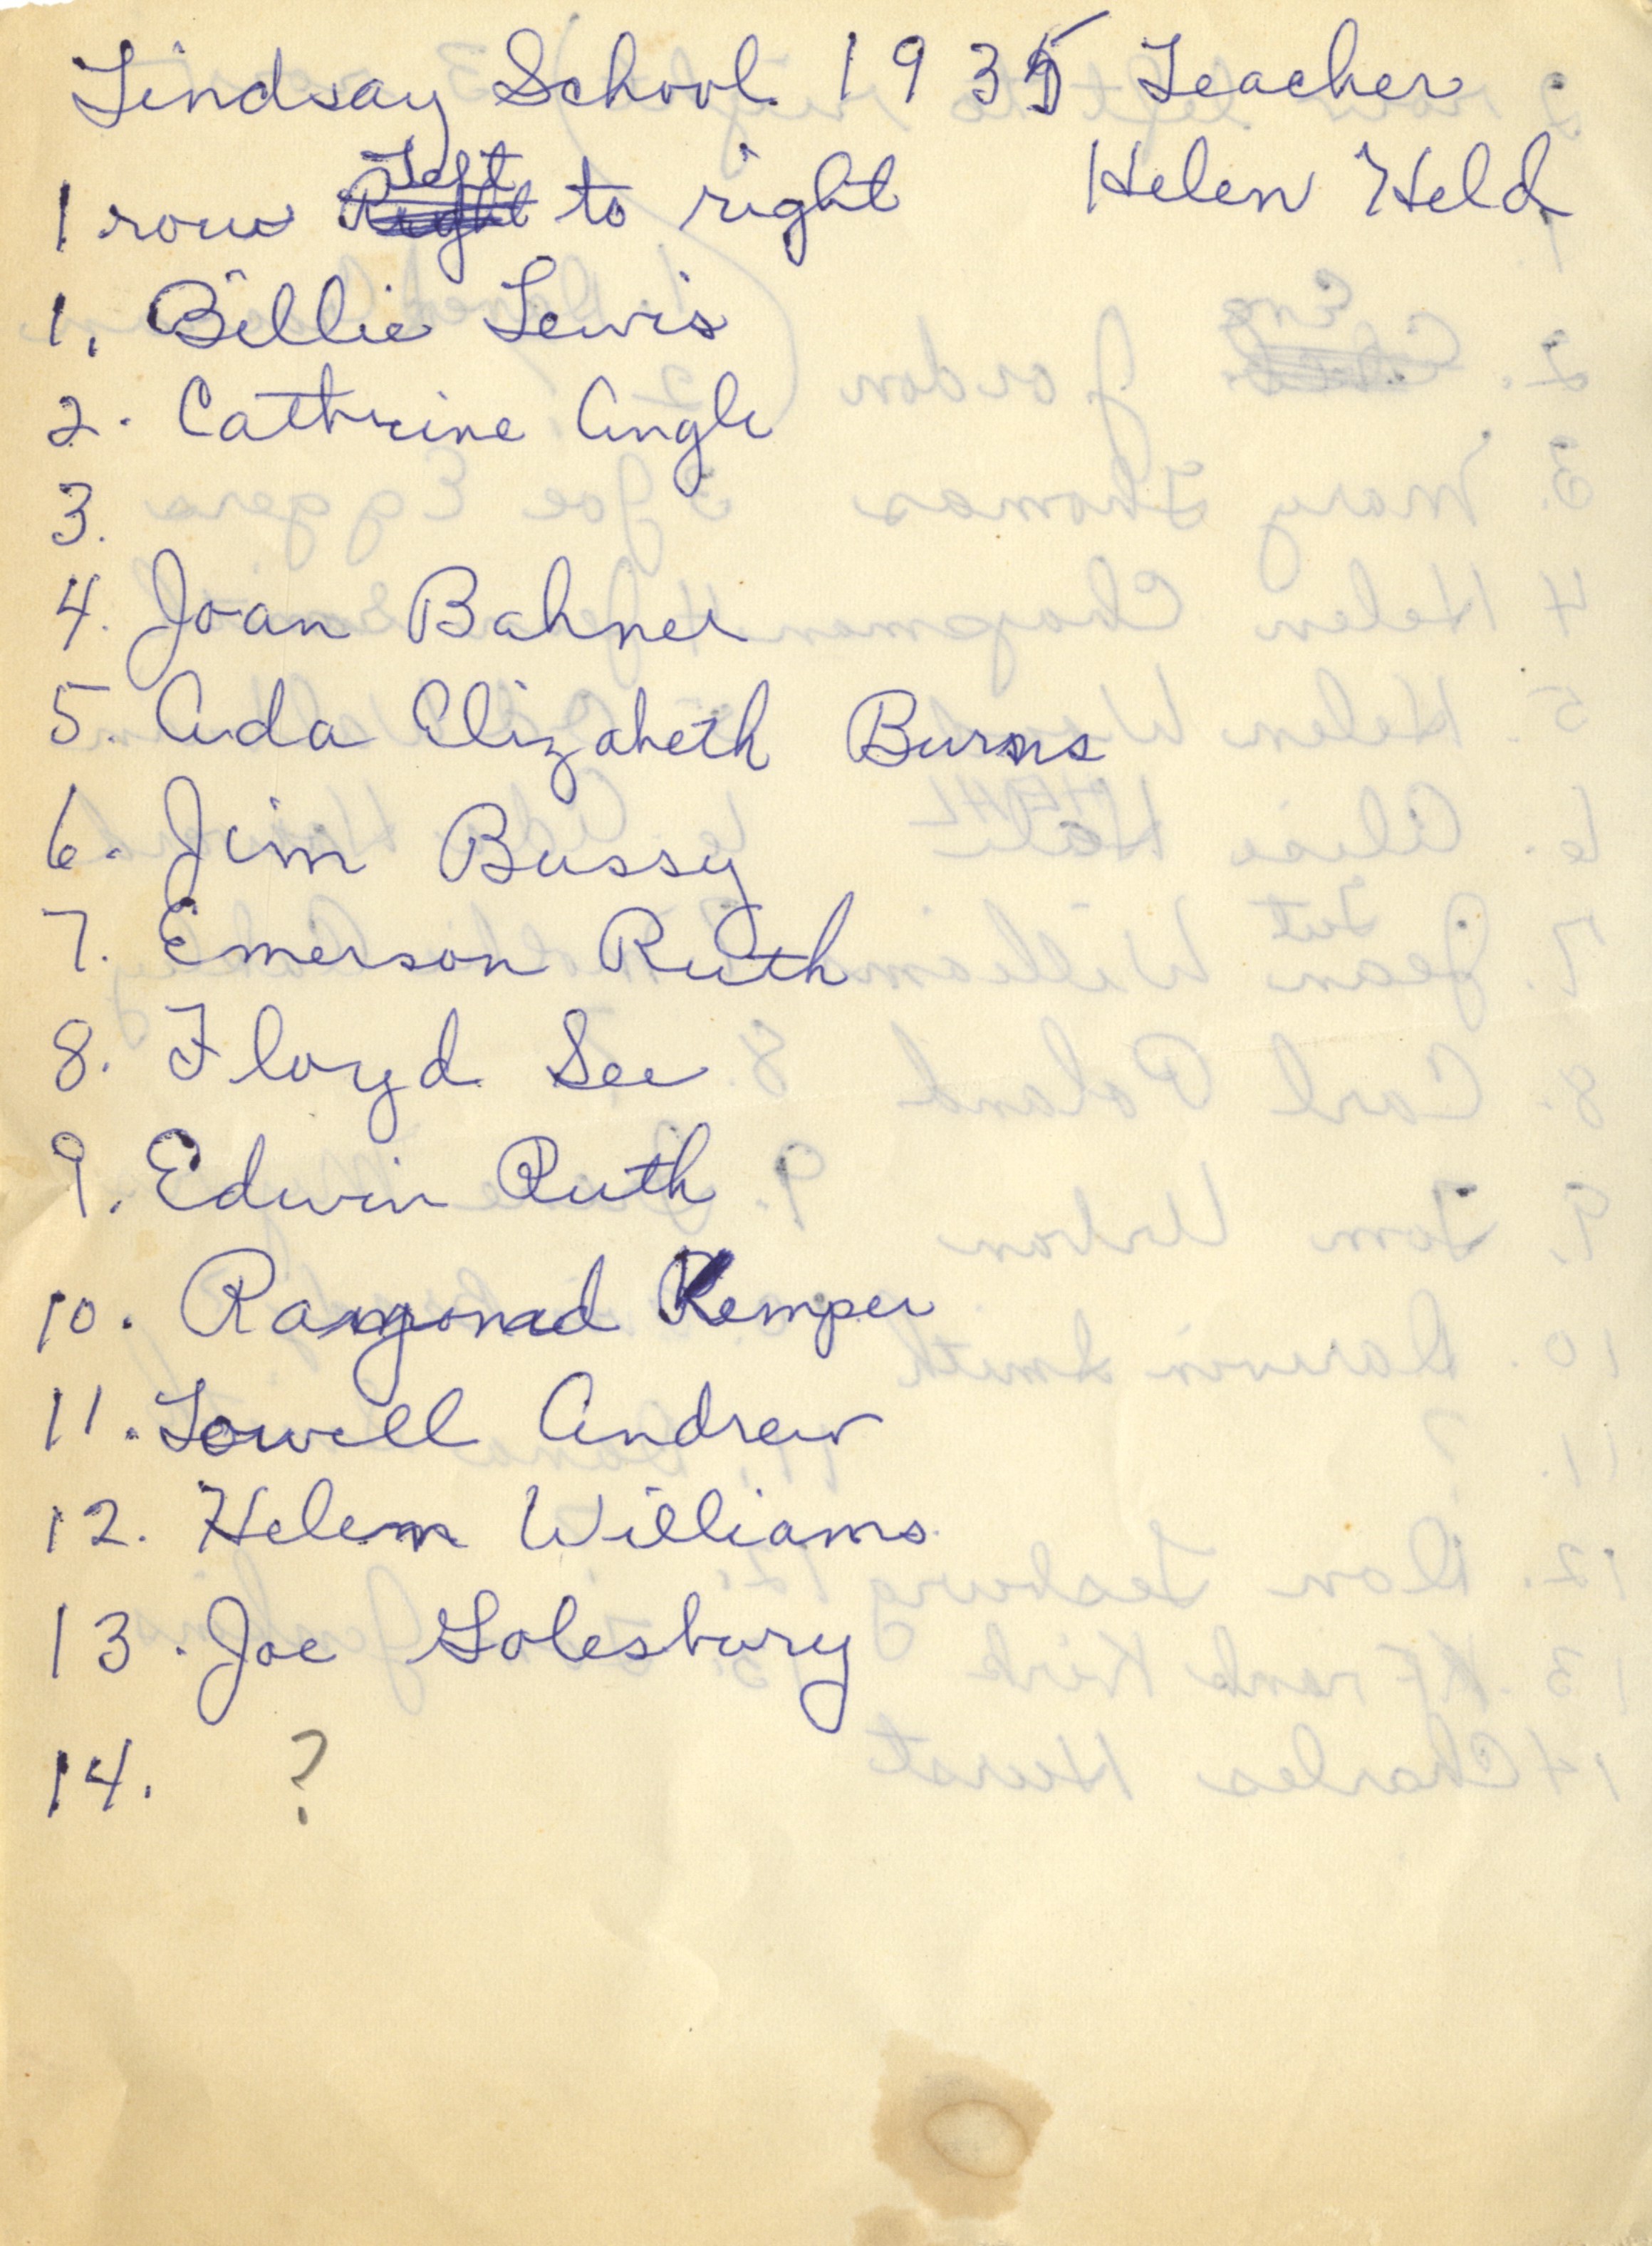 Lindsay School 1935 Teacher
Helen Held
1 row Left to right
1. Billie Lewis
2. Cathrine Angle
3.
4. Joan Bahner
5. Ada Elizabeth Burns
6. Jim Bussy
7. Emerson Ruth
8. Floyd See
9. Edwin Ruth
10. Raymond Kemper
11. Lowell Andrew
12. Helen Williams
13. Joe Solesbury
14. ?